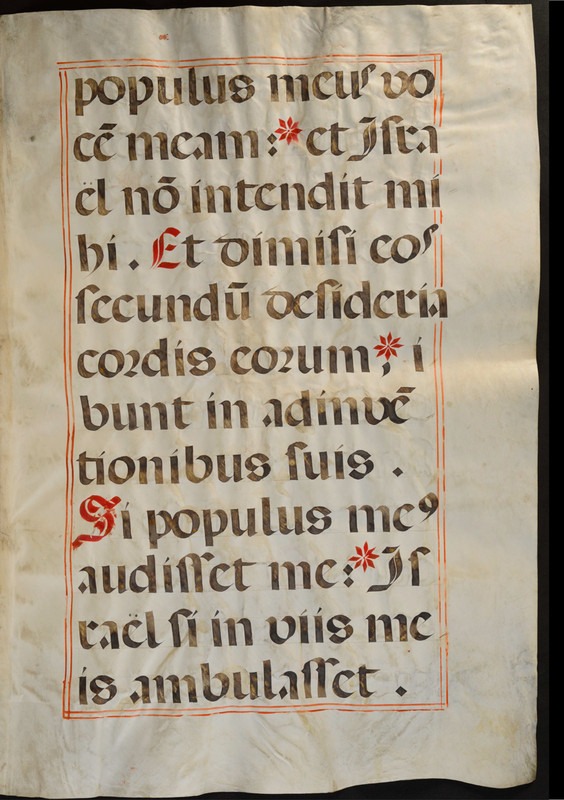 populus meuſ vo
cē meam : * et Iſra
ël nō intendit mi
hi . Et dimiſi eoſ
ſecundū deſideria
coꝛdis eoꝛum ; * i
bunt in adinvē
tionibus ſuis .
Si populus meꝰ
audiſſet me : * Iſ
raël ſi in viis me
is ambulaſſet .